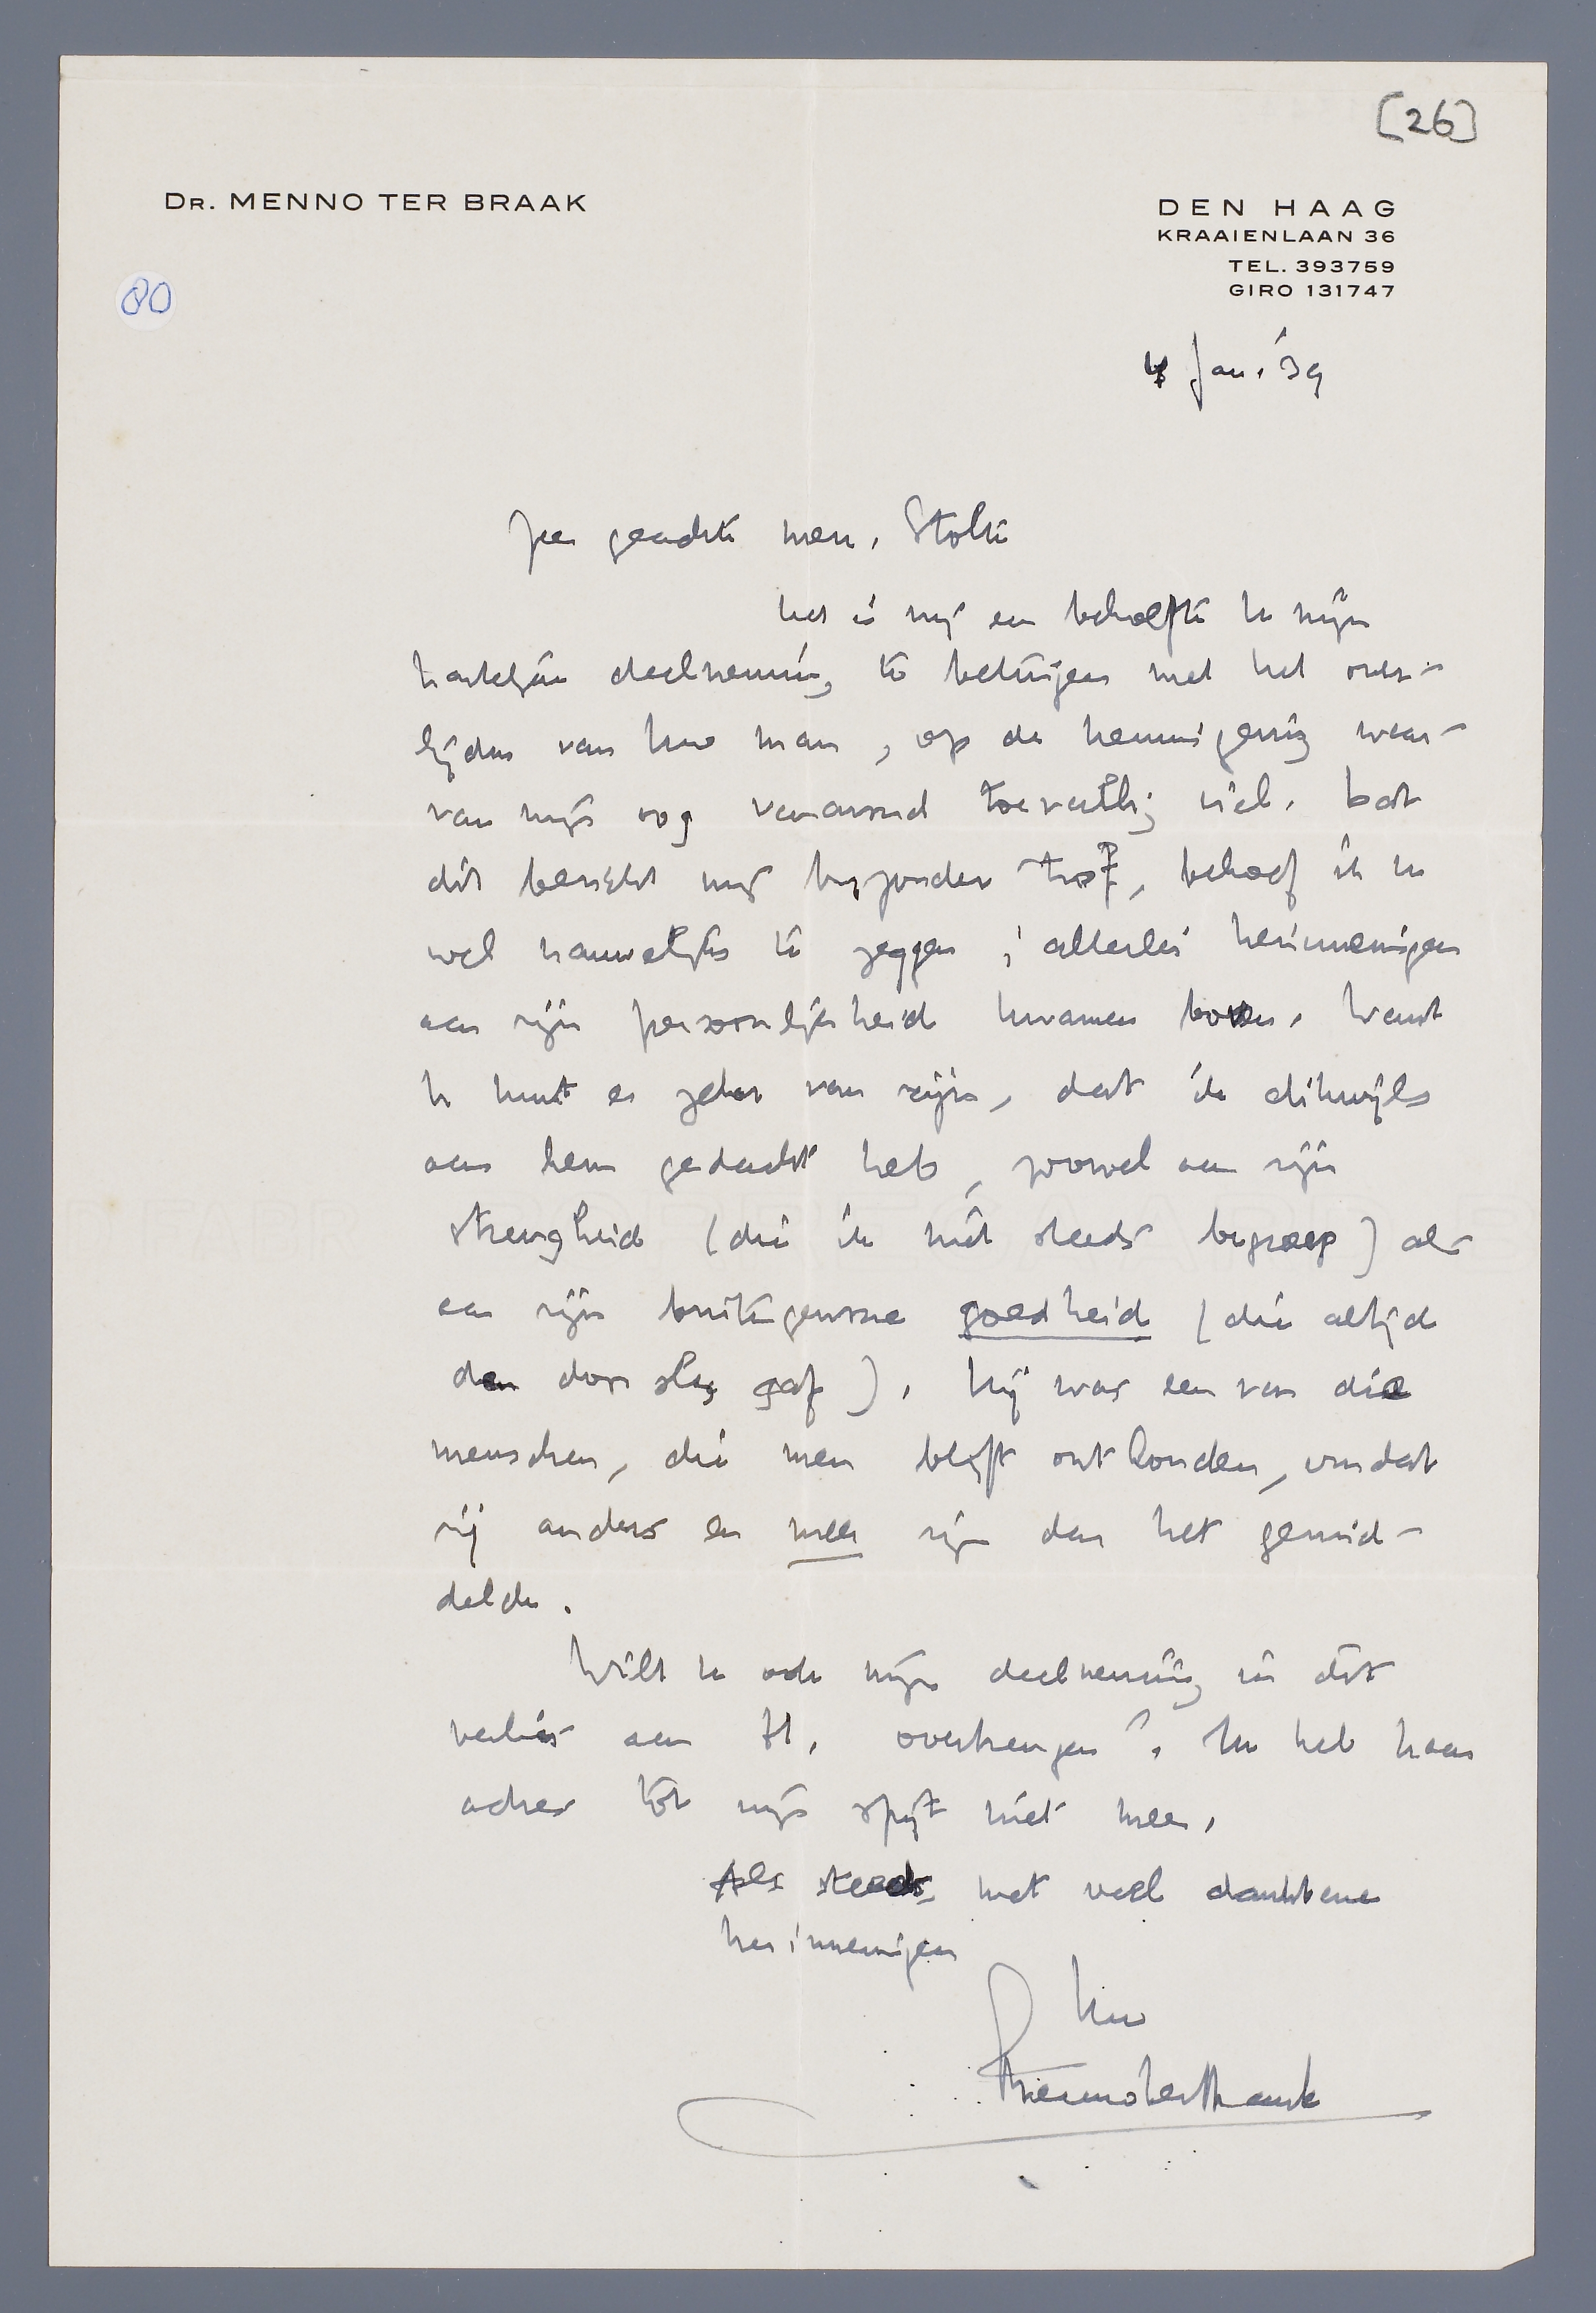 [26]
DR. MENNO TER BRAAK
DEN HAAG
KRAAIENLAAN 36
TEL. 393759
GIRO 131747
80
4 Jan. '39
Zeer geachte mevr. Stolte
het is mij een behoefte U mijn
hartelijke deelneming te betuigen met het over-
lijden van Uw man, op de kennisgeving waar-
van mijn oog vanavond toevallig viel. Dat
dit bericht mij bijzonder trof, behoef ik U
wel nauwelijks te zeggen; allerlei herinneringen
aan zijn persoonlijkheid kwamen boven. Want
U kunt er zeker van zijn, dat ik dikwijls
aan hem gedacht heb, zoowel aan zijn
strengheid (die ik niet steeds begreep) als
aan zijn buitengewone goedheid (die altijd
den doorslag gaf). Hij was een van die
menschen, die men blijft onthouden, omdat
zij anders en meer zijn dan het gemid-
delde.
Wilt U ook mijn deelneming in dit
verlies aan H. overbrengen? Ik heb haar
adres tot mijn spijt niet meer.
Als steeds, met veel dankbare
herinneringen
Uw
Menno ter Braak